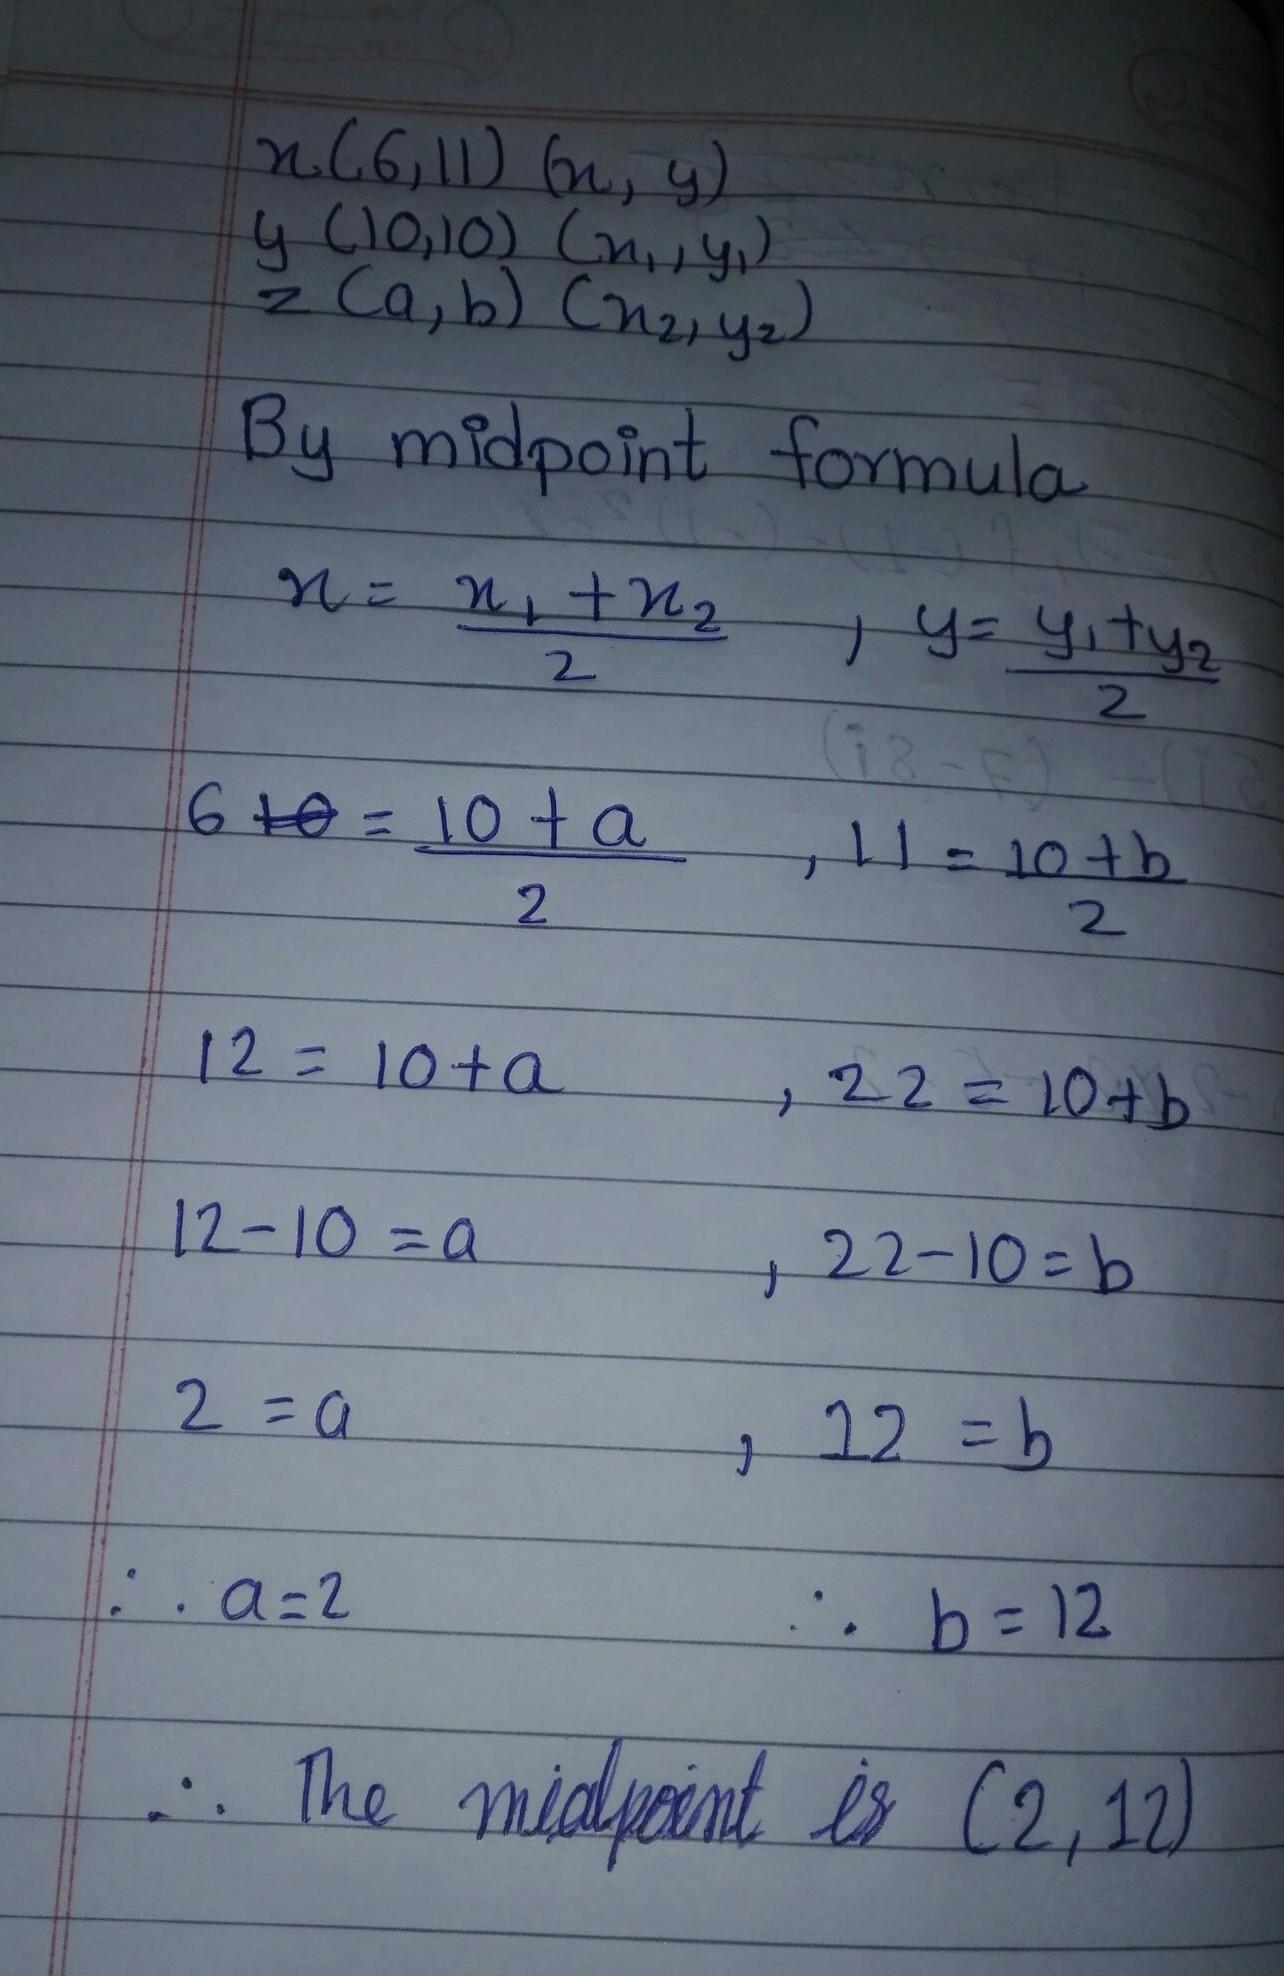 x(6,11) (x, y)
y (10,10) (x₁, y₁)
z (a, b) (x₂, y₂)
By midpoint formula
x = x₁ + x₂ / 2 , y = y₁ + y₂ / 2
6 = 10 + a / 2 , 11 = 10 + b / 2
12 = 10 + a , 22 = 10 + b
12 - 10 = a , 22 - 10 = b
2 = a , 12 = b
∴ a = 2 ∴ b = 12
∴ The midpoint is (2, 12)